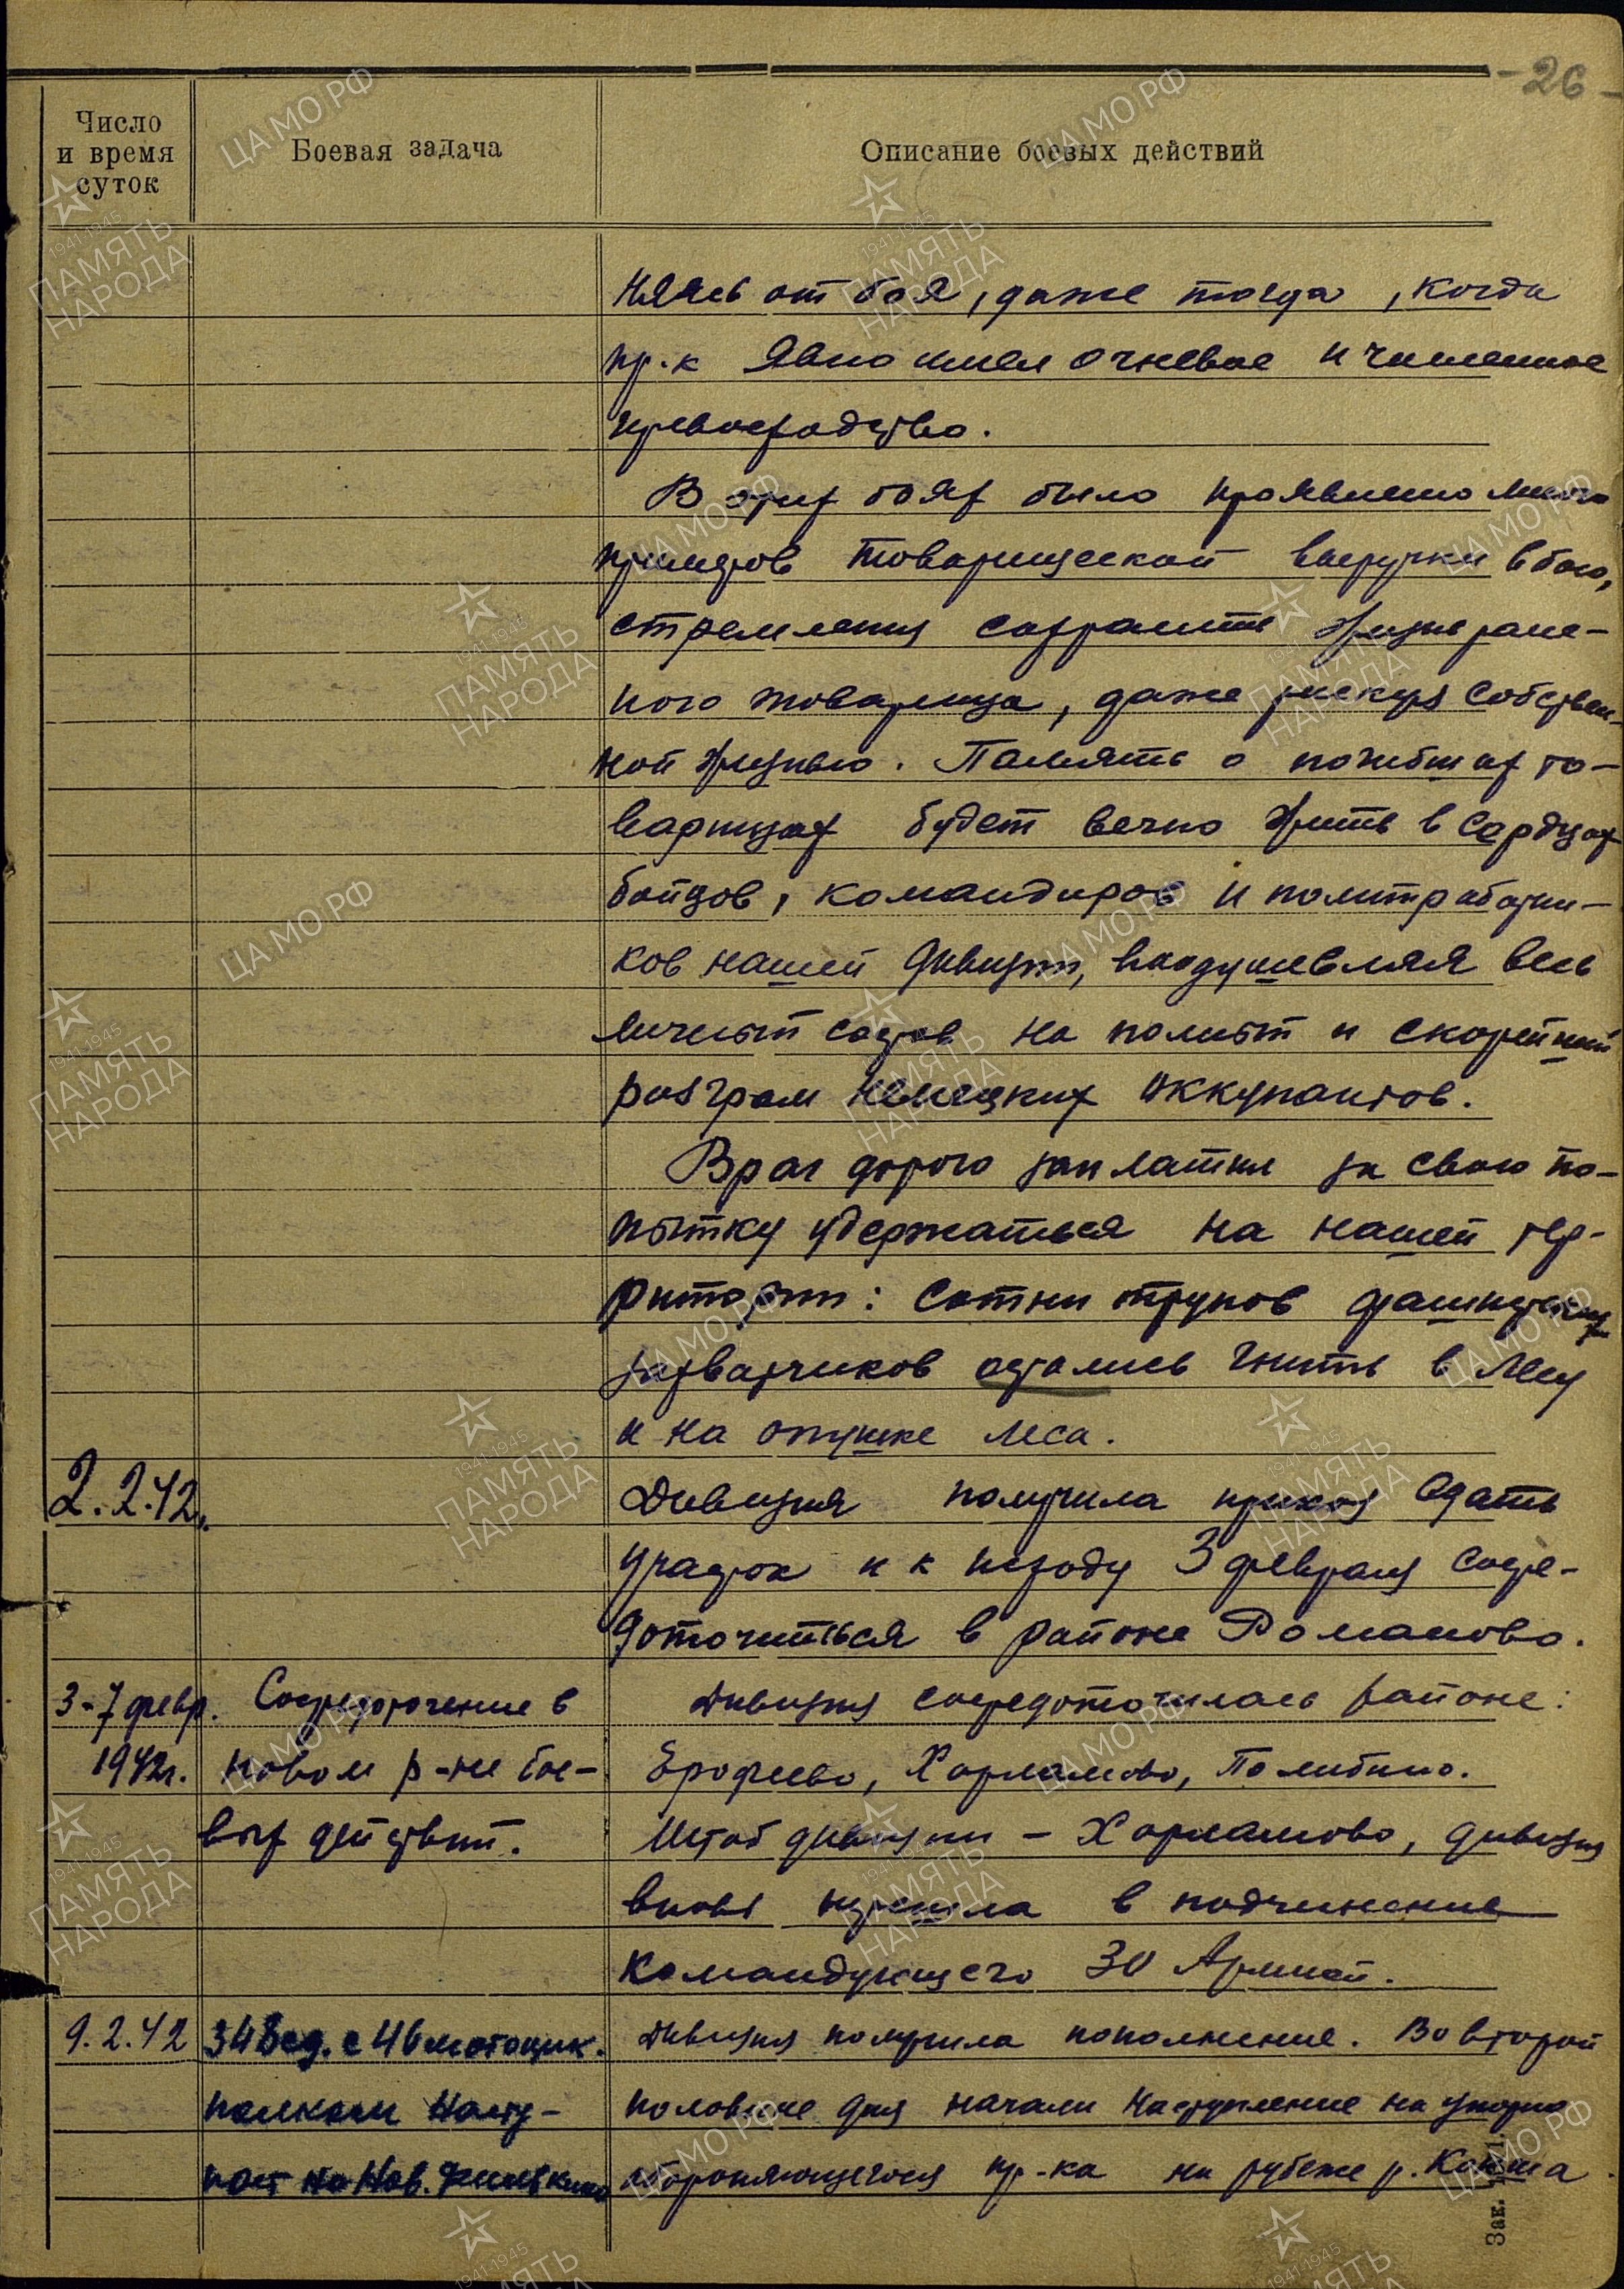 - 26 -
Число
и время
суток
Боевая задача
Описание боевых действий
няясь от боя, даже тогда, когда
пр-к явно имел огневое и численное
превосходство.
В этих боях было проявлено много
примеров товарищеской выручки в бою,
стремления сохранить жизнь ране-
ного товарища, даже рискуя собствен-
ной жизнью. Память о погибших то-
варищах будет вечно жить в сердцах
бойцов, командиров и политработни-
ков нашей дивизии, воодушевляя весь
личный состав на полный и скорейший
разгром немецких оккупантов.
Враг дорого заплатил за свою по-
пытку удержаться на нашей тер-
ритории: сотни трупов фашистских
захватчиков остались гнить в лесу
и на опушке леса.
2.2.42.
Дивизия получила приказ сдать
участок и к исходу 3 февраля сосре-
доточиться в районе Романово.
3-7 февр.
1942г.
Сосредоточение в
новом р-не бое-
вых действий.
Дивизия сосредоточилась районе:
Ерофеево, Харламово, Полибино.
Штаб дивизии - Харламово, дивизия
вновь перешла в подчинение
командующего 30 Армией.
9.2.42
348 сд. с 46 мотоцик.
полком насту-
пает на Нов.
Дивизия получила пополнение. Во второй
половине дня начали наступление на упорно
обороняющегося пр-ка на рубеже р. Кокша
Зак.
ЦАМО РФ
1941-1945
ПАМЯТЬ
НАРОДА